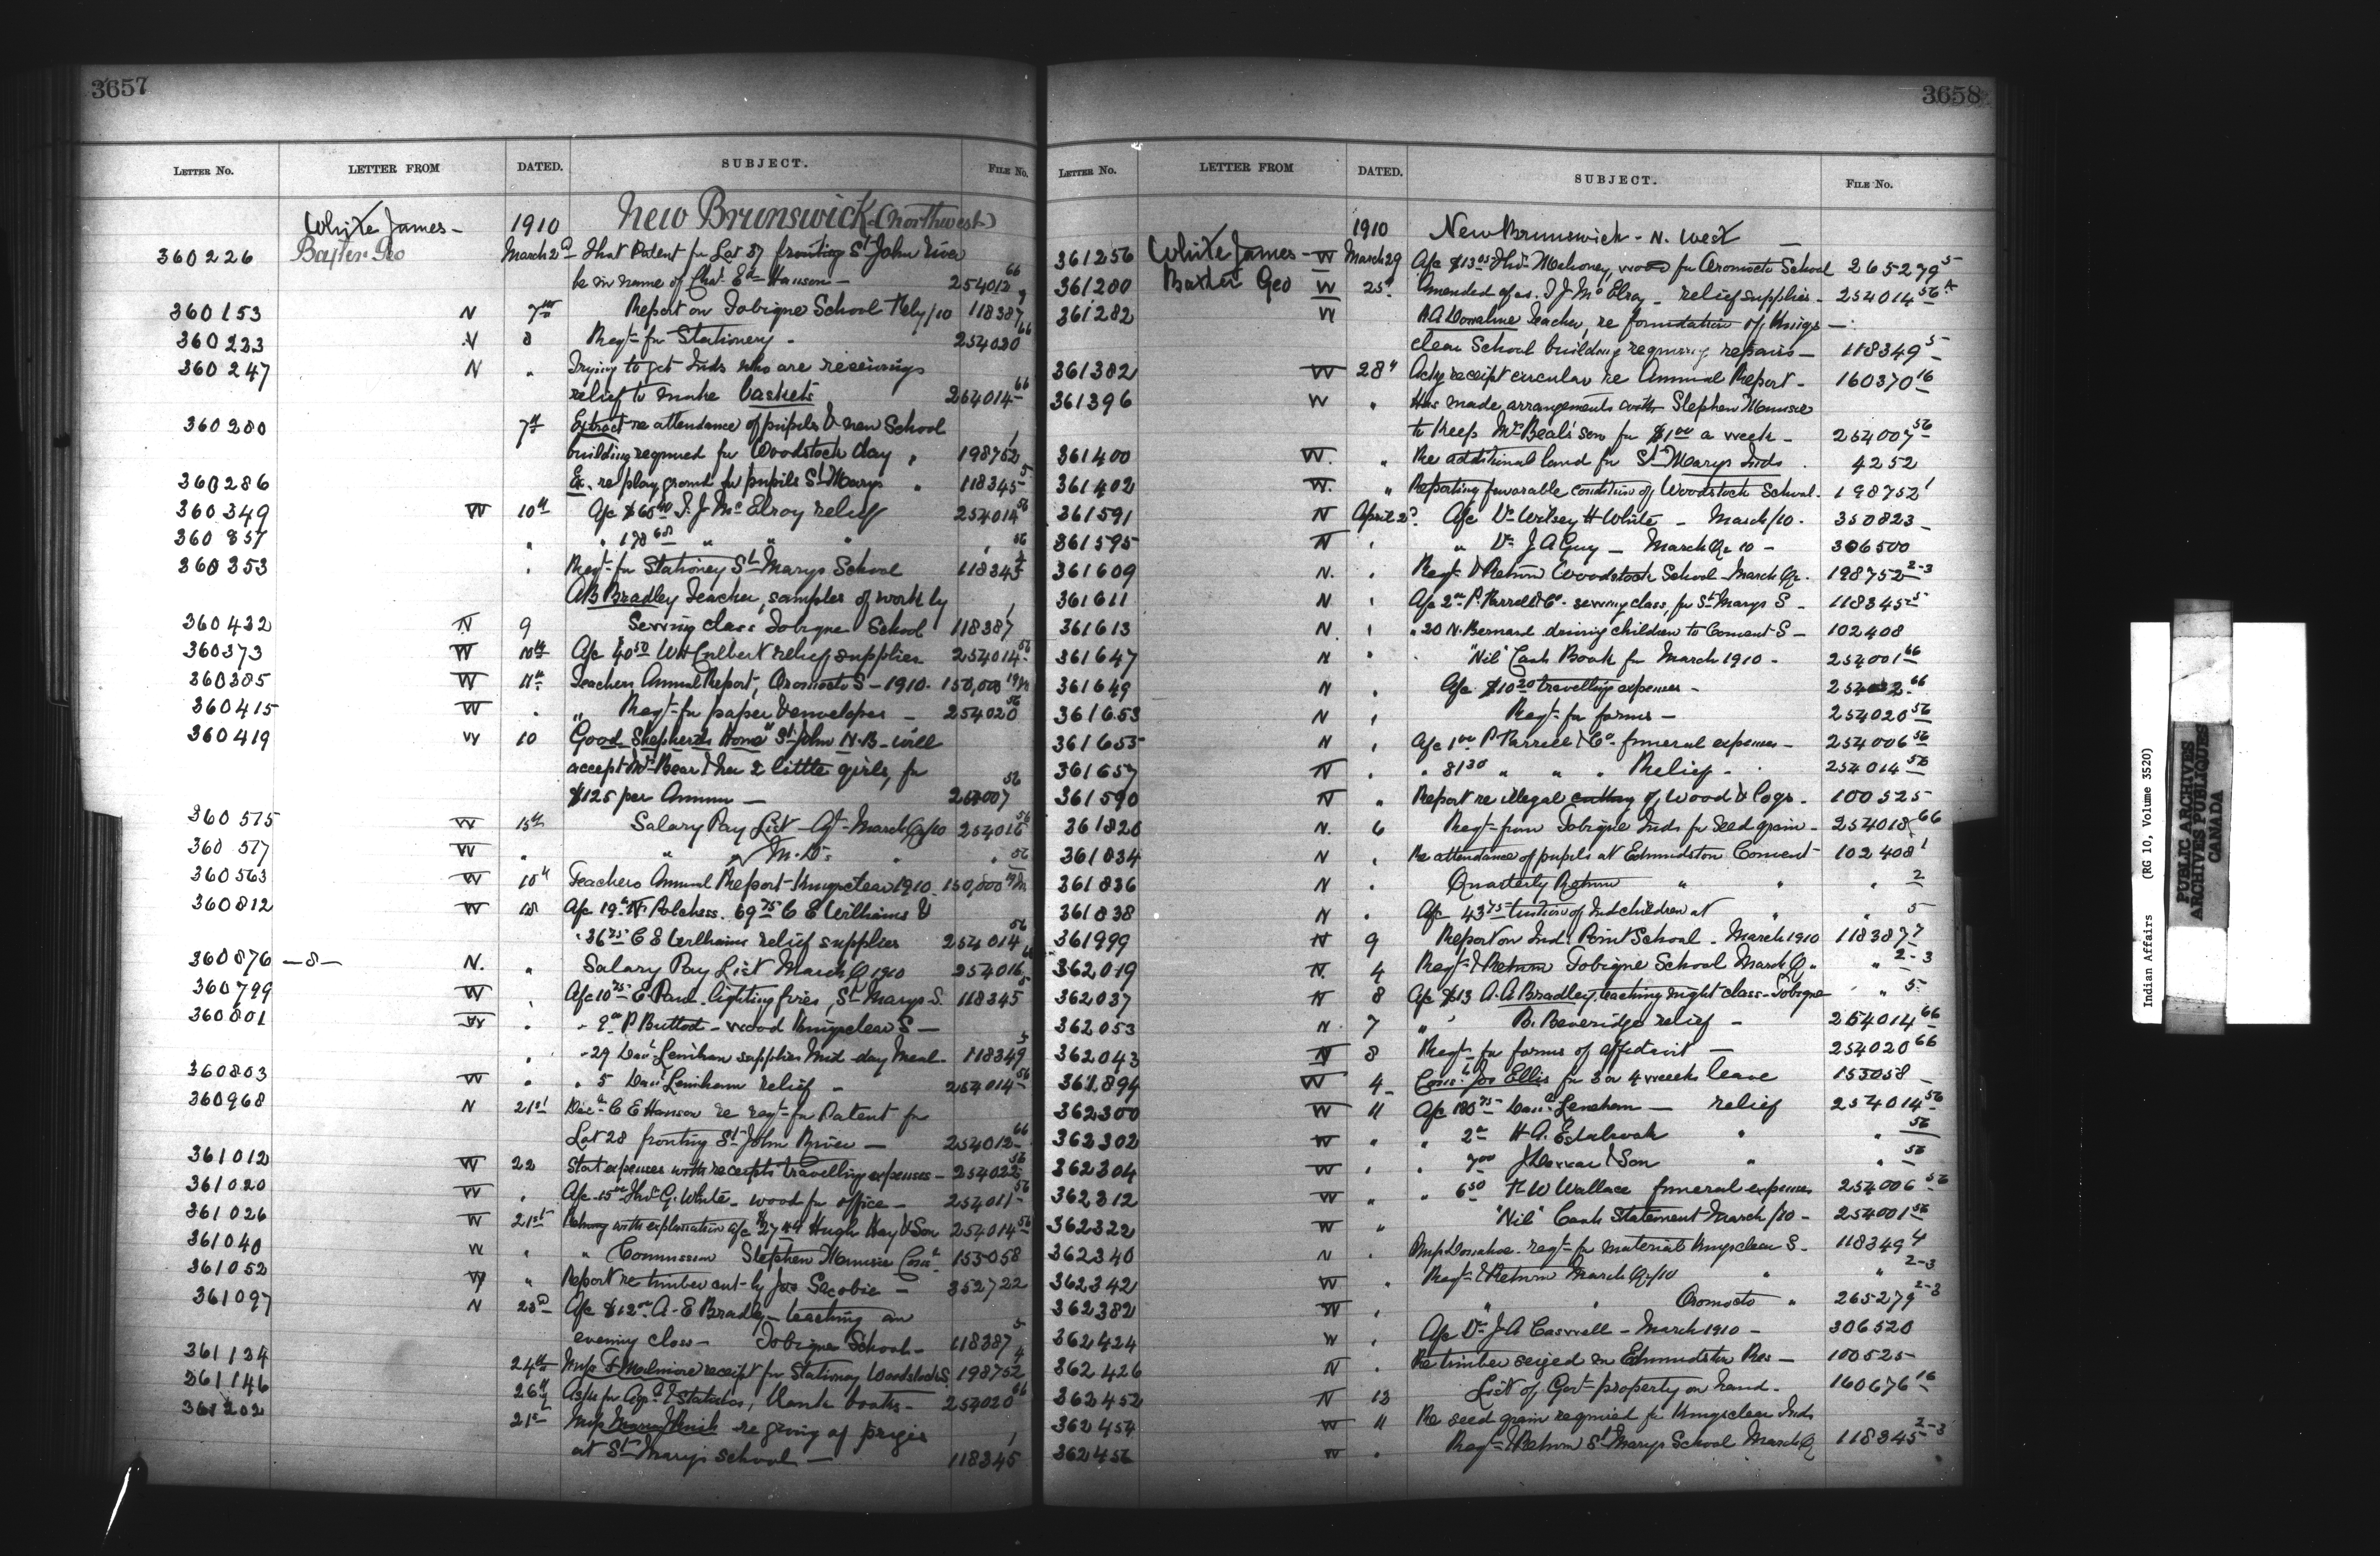 3657
LETTER No. LETTER FROM DATED. SUBJECT. FILE No.
White James - 1910 New Brunswick (northwest)
360226 Baxter Geo March 2d That Patent for Lot 87 fronting St John River
be in name of Chas. Ed. Hanson - 254012 66
360153 N 7th Report on Tobique School Feby/10 118387
360223 N 8 Reqt for Stationery - 254020 66
360247 N " Trying to get Inds who are receiving
relief to make baskets 254014 66
360280 7th Extract re attendance of pupils & new School
building required for Woodstock day " 198752 1
360286 Ex. re play ground for pupils St Marys " 118345 5
360349 W 10th A/c $65 T. J. McElroy relief 254014 56
360357 " " 178 " " " 56
360353 " Reqt for Stationery St Marys School 118345
AB Bradley Teacher, samples of work by
360432 N 9 Sewing class Tobique School 118387 1
360373 W 10th A/c 40 50 WH Culbert relief supplies 254014 56
360385 W 11th Teachers Annual Report, Oromocto S - 1910. 150,000
360415 W " " Reqt for paper & envelopes - 254020 56
360419 W 10 Good Shepherds Home St John N.B - will
accept Bear & her 2 little girls, for
$125 per Annum - 254007 56
360575 W 15th Salary Pay List Agt March Qr/10 254016 56
360577 W " " M.D. " " 56
360563 W 10th Teachers Annual Report - Kingsclear 1910. 150,000
360812 W 18 A/c 19 N. Polchess. 69 75 C E Williams &
" 36 75 C E Williams relief supplies 254014 56
360876 -8- N. " Salary Pay List March Q 1910 254016 66
360799 W " A/c 10 75 E. Paul - lighting fires, St Marys S. 118345 5
360801 W " - P Buttot - wood Kingsclear S -
" - 29 Danl Lenihan supplies Mid-day Meal - 118349 5
360803 W " " 5 Danl Lenihan relief - 254014 56
360968 N 21st C E Hanson re reqt for Patent for
Lot 28 fronting St John River - 254012 66
361012 W 22 Stat expenses with receipts travelling expenses - 254022 56
361020 W " A/c 15 Thos G. White - wood for office - 254011 56
361026 W 21st Returning with explanation a/c $27 49 Hugh Hay & Son 254014 56
361040 W " " Commission Stephen Con. 153058
361052 W " Report re timber cut by Jos Sacobie - 352722
361097 N 23d A/c $12 A-E Bradley - teaching an
evening class - Tobique School - 118387 5
361134 24th Miss receipt for Stationery Woodstock S. 198752 4
361146 26th Asks for Statutes, blank books - 254020 66
361202 21st Miss re giving of prizes
at St Marys School - 118345 1
3658
LETTER No. LETTER FROM DATED. SUBJECT. FILE No.
1910 New Brunswick - N. West
361256 White James - W March 29 A/c $13 Thos. Mahoney, wood for Oromocto School 265279 5
361280 Baxter Geo W 25" Amended a/cs. T J McElroy - relief supplies - 254014 56
361282 W R A Donahue Teacher, re foundation of Kings -
clear School building requiring repairs - 118349 5
361382 W 28" Ackg receipt circular re Annual Report - 160370 16
361396 W " Has made arrangements with Stephen
to Keep Mrs Beals' son for $1 00 a week - 254007 56
361400 W. " Re additional land for St Marys Inds . 4252
361402 W. " Reporting favorable condition of Woodstock School. 198752 1
361591 N April 2d A/c Dr Wilsey H White - March/10 - 350823
361595 N " Dr. J A Guy - March Qr 10 - 306500
361609 N. " Reqt & Return Woodstock School - March Qr. 198752 2-3
361611 N " A/c 2 P. Farrell & Co - sewing class, for St Marys S - 118345 5
361613 N " " 20 N. Bernard driving children to Convent S - 102408
361647 N " "Nil" Cash Book for March 1910 - 254001 66
361649 N " A/c $10 20 travelling expenses - 254022 66
361653 N " Reqt for forms - 254020 56
361655 N " A/c 1 00 P Farrell & Co - funeral expenses - 254006 56
361657 N " " 81 30 " " " Relief - 254014 56
361590 N " Report re illegal cutting of, Wood & logs. 100525
361826 N. 6 Reqt from Tobique Inds for Seed grain - 254018 66
361834 N " Re attendance of pupils at Edmundston Convent 102408 1
361836 N " Quarterly Return " " " 2
361838 N " A/c 43 75 tuition of Ind children at " " 5
361999 N 9 Report on Ind. Point School - March 1910 118387 7
362019 N. 4 Reqt & Return Tobique School March Q. " 2-3
362037 N 8 A/c $13 A. A Bradley, teaching night class - Tobique " 5
362053 N. 7 " B. Beveridge relief - 254014 66
362043 N 8 Reqt for forms of affidavit - 254020 66
361894 W 4 Const. Jos Ellis for 3 or 4 weeks leave 153058
362300 W 11 A/c 180 75 Danl Lenihan - relief 254014 56
362302 W " " 2 H A. Estabrook " " 56
362304 W " " 7 00 J & Son " " 56
362312 W " " 6 50 F W Wallace funeral expenses 254006 56
362322 W " "Nil" Cash Statement March /10 - 254001 56
362340 N " Miss Donahoe - reqt for material Kingsclear S - 118349 4
362342 W " Reqt & Return March Qr/10 " " 2-3
362382 W " " " Oromocto " 265279 2-3
362424 W " A/c Dr J A Caswell - March 1910 - 306520
362426 N " Re timber seized on Edmundston Res - 100525
362452 N 12 List of Govt property on hand - 160676 16
362454 W 11 Re seed grain required for Kingsclear Inds
362456 W " Reqt & Return St Marys School March Q 118345 2-3
Indian Affairs (RG 10, Volume 3520)
PUBLIC ARCHIVES
ARCHIVES PUBLIQUES
CANADA